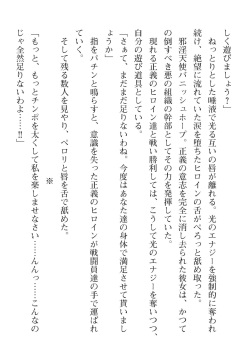 しく遊びましょう？」
　ねっとりとした唾液で光る互いの唇が離れる。光のエナジーを強制的に奪われ
続け、絶望に流れていた涙を堕ちたヒロインの舌がべろっと舐め取った。
　邪淫天使パニッシュホープ。正義の意志を完全に消し去られた彼女は、かつて
の倒すべき悪の組織の幹部としてその力を発揮していた。
　現れる正義のヒロイン達と戦い勝利しては、こうして光のエナジーを奪いつつ、
自分の遊び道具としている。
「さぁて、まだまだ足りないわね。今度はあなた達の身体で満足させて貰いまし
ょうか」
　指をパチンと鳴らすと、意識を失った正義のヒロインが戦闘員達の手で運ばれ
ていく。
　そして残る数人を見やり、ペロリと唇を舌で舐めた。
※
「もっと、もっとチンポを太くして私を楽しませなさい……んんっ……こんなの
じゃ全然足りないわよ……!!」